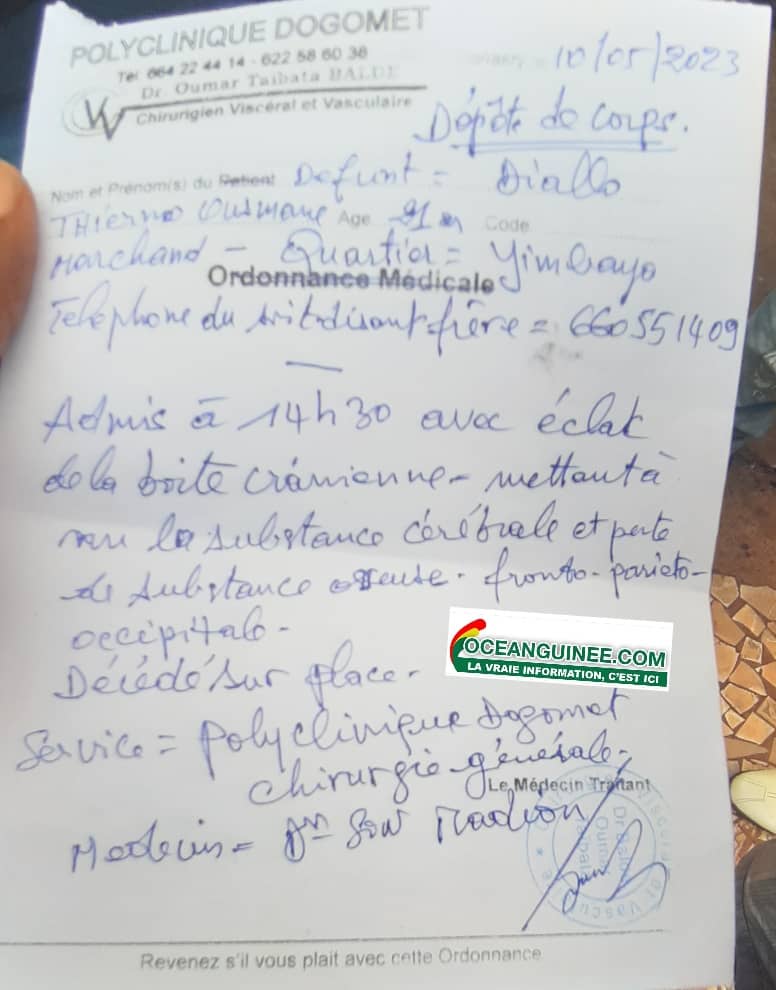 POLYCLINIQUE DOGOMET
Tel: 664 22 44 14 - 622 58 60 38
Dr. Oumar Taibata BALDE
Chirurgien Viscéral et Vasculaire
10/05/2023
Dépôte de corps.
Nom et Prénom(s) du Patient Defunt = Diallo
Thierno Ousmane Age Code
Marchand - Quartier = Yimbaya
Ordonnance Médicale
Telephone du soit-disant frère = 660551409
Admis à 14h30 avec éclat
de la boite crânienne - mettant à
nu la substance cérébrale et perte
de substance osseuse. fronto-parieto-
occipitale -
OCEANGUINEE.COM
LA VRAIE INFORMATION, C'EST ICI
Décédé sur place -
Service = polyclinique Dogomet
chirurgie générale -
Le Médecin Traitant
Medecin = Dr Sow
Revenez s'il vous plait avec cette Ordonnance